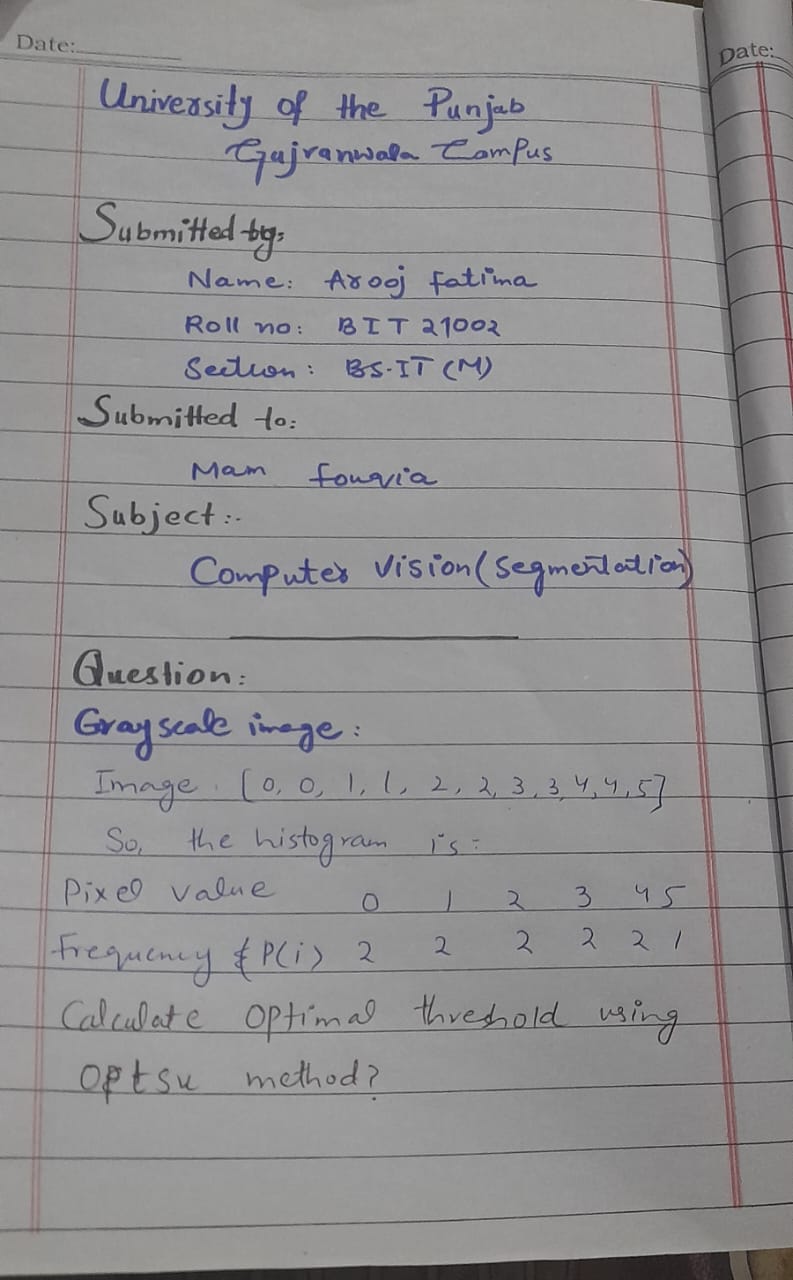 Date:
Date:
University of the Punjab
Gujranwala Campus
Submitted by:
Name: Arooj Fatima
Roll no: BIT21002
Section: BS-IT (M)
Submitted to:
Mam Fouzia
Subject:-
Computer Vision (Segmentation)
Question:
Grayscale image:
Image. [0, 0, 1, 1, 2, 2, 3, 3, 4, 4, 5]
So, the histogram is:
Pixel value 0 1 2 3 4 5
Frequency & P(i) 2 2 2 2 2 1
Calculate optimal threshold using
optsu method?